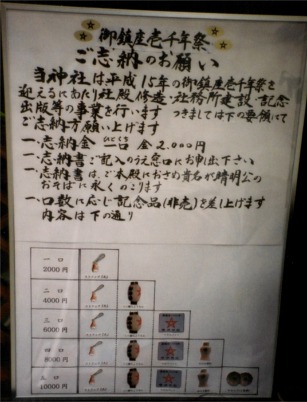 御鎮座壱千年祭
ご志納のお願い
当神社は平成15年の御鎮座壱千年祭を
迎えるにあたり社殿修造・社務所建設・記念
出版等の事業を行います つきましては下の要領にて
ご志納方願い上げます
一、志納金 一口 金2,000円
一、志納書ご記入のうえ窓口にお申出下さい
一、志納書は、ご本殿におさめ貴名が晴明公の
おそばに永くのこります
一、口数に応じ記念品(非売)を差し上げます
内容は下の通り
一口
2000円
二口
4000円
三口
6000円
四口
8000円
五口
10000円